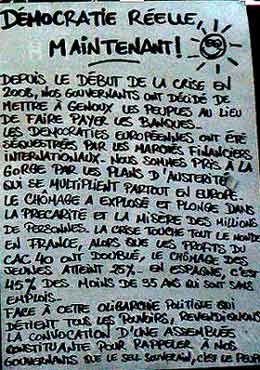 DÉMOCRATIE RÉELLE,
MAINTENANT!
DEPUIS LE DÉBUT DE LA CRISE EN
2008, NOS GOUVERNANTS ONT DÉCIDÉ DE
METTRE À GENOUX LES PEUPLES AU LIEU
DE FAIRE PAYER LES BANQUES.
LES DEMOCRATIES EUROPÉENNES ONT ÉTÉ
SÉQUESTRÉES PAR LES MARCHÉS FINANCIERS
INTERNATIONAUX. NOUS SOMMES PRIS À LA
GORGE PAR LES PLANS D'AUSTERITÉ
QUI SE MULTIPLIENT PARTOUT EN EUROPE.
LE CHÔMAGE A EXPLOSÉ ET PLONGE DANS
LA PRECARITÉ ET LA MISÈRE DES MILLIONS
DE PERSONNES. LA CRISE TOUCHE TOUT LE MONDE
EN FRANCE, ALORS QUE LES PROFITS DU
CAC 40 ONT DOUBLÉ, LE CHÔMAGE DES
JEUNES ATTEINT 25%. EN ESPAGNE, C'EST
45% DES MOINS DE 35 ANS QUI SONT SANS
EMPLOIS.
FACE À CETTE OLIGARCHIE POLITIQUE QUI
DÉTIENT TOUS LES POUVOIRS, REVENDIQUONS
LA CONVOCATION D'UNE ASSEMBLÉE
CONSTITUANTE POUR RAPPELER À NOS
GOUVERNANTS QUE LE SEUL SOUVERAIN, C'EST LE PEUPL